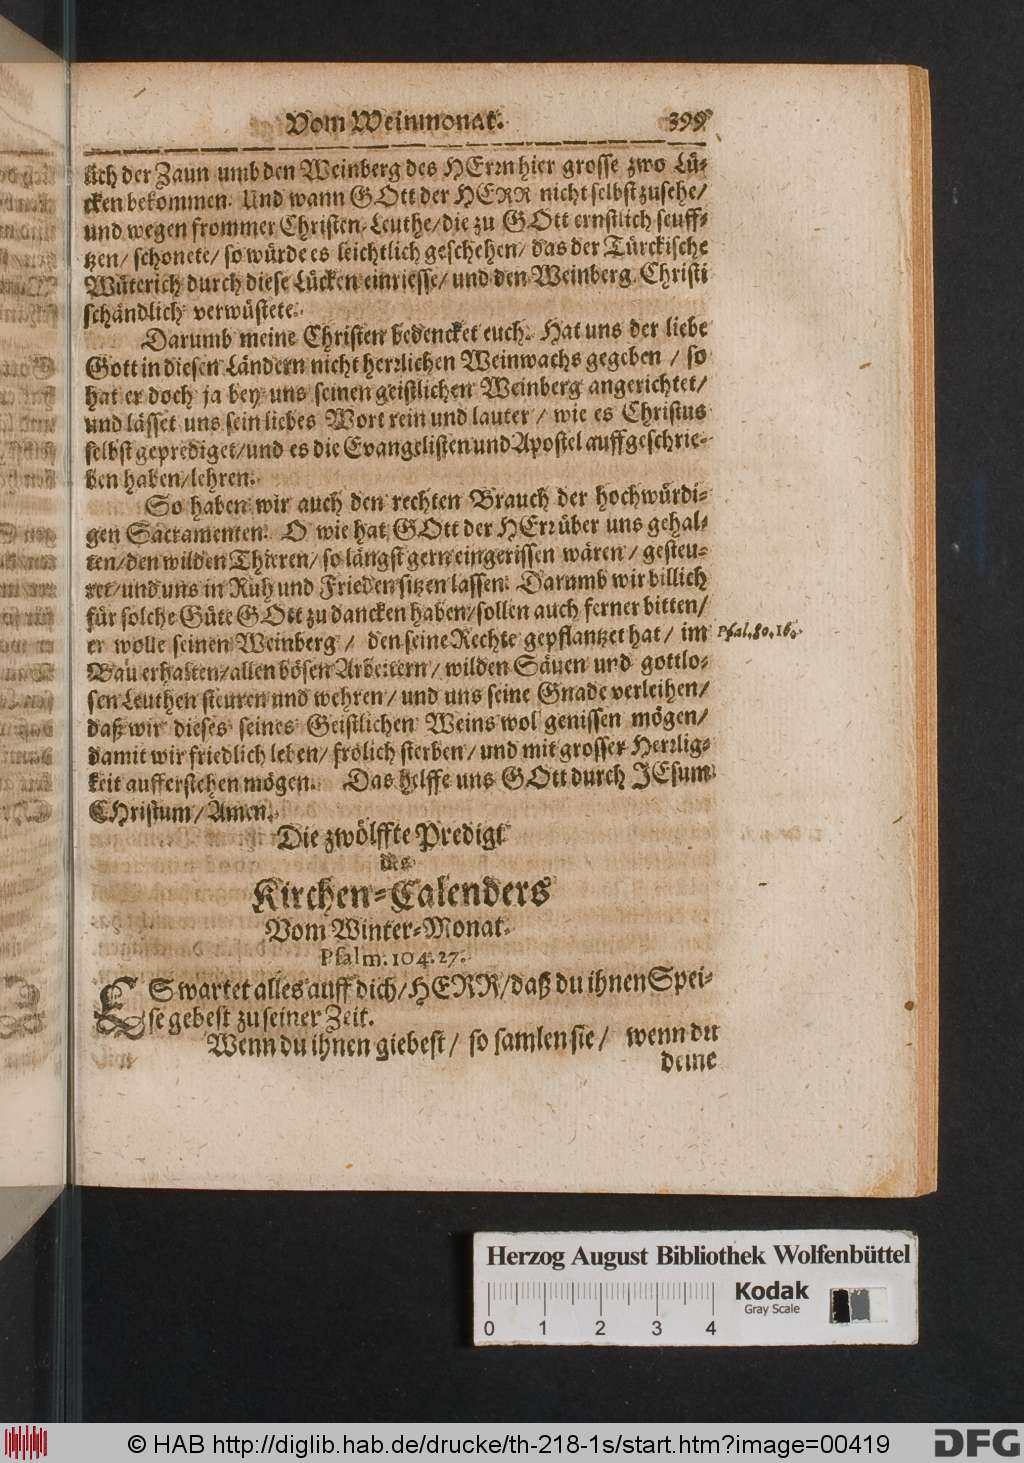 Vom Weinmonat. 399
lich der Zaun umb den Weinberg des HErrn hier grosse zwo Lü-
cken bekommen. Und wann GOtt der HERR nicht selbst zusehe/
und wegen frommer Christen-Leuthe/die zu GOtt ernstlich seuff-
tzen/ schonete/ so würde es leichtlich geschehen/ das der Türckische
Wüterich durch diese Lücken einriesse/ und den Weinberg Christi
schändlich verwüstete.
Darumb meine Christen bedencket euch. Hat uns der liebe
Gott in diesen Ländern nicht herrlichen Weinwachs gegeben / so
hat er doch ja bey uns seinen geistlichen Weinberg angerichtet/
und lässet uns sein liebes Wort rein und lauter / wie es Christus
selbst geprediget/und es die Evangelisten und Apostel auffgeschrie-
ben haben/lehren.
So haben wir auch den rechten Brauch der hochwürdi-
gen Sacramenten. O wie hat GOtt der HErr über uns gehal-
ten/den wilden Thieren/ so längst gern eingerissen wären/ gesteu-
ret/und uns in Ruh und Frieden sitzen lassen. Darumb wir billich
für solche Güte GOtt zu dancken haben/sollen auch ferner bitten/
er wolle seinen Weinberg / den seine Rechte gepflantzet hat / im Psal.80.16.
Bau erhalten/allen bösen Arbeitern/ wilden Säuen und gottlo-
sen Leuthen steuren und wehren/ und uns seine Gnade verleihen/
daß wir dieses seines Geistlichen Weins wol genissen mögen/
damit wir friedlich leben/ frölich sterben/ und mit grosser Herrlig-
keit aufferstehen mögen. Das helffe uns GOtt durch JEsum
CHristum/ Amen.
Die zwölffte Predigt
des
Kirchen-Calenders
Vom Winter-Monat.
Psalm. 104. 27.
ES wartet alles auff dich/HERR/daß du ihnen Spei-
se gebest zu seiner Zeit.
Wenn du ihnen giebest/ so samlen sie/ wenn du
deine
Herzog August Bibliothek Wolfenbüttel
Kodak
Gray Scale
0 1 2 3 4
© HAB http://diglib.hab.de/drucke/th-218-1s/start.htm?image=00419
DFG